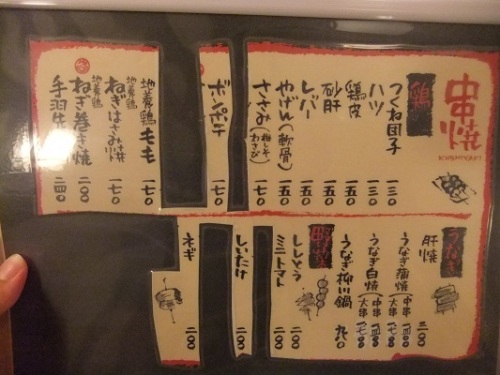 串焼
KUSHIYAKI
鶏
つくね団子 一三〇
ハツ 一三〇
鶏皮 一五〇
砂肝 一五〇
レバー 一五〇
やげん(軟骨) 一五〇
ささみ(梅しそ わさび) 一七〇
ボンポチ 一七〇
地養鶏 もも 一七〇
地養鶏 ねぎはさみ 一七〇
地養鶏 ねぎ巻き焼 二〇〇
手羽先 二四〇
うなぎ
肝焼 二〇〇
うなぎ蒲焼
うなぎ白焼
うなぎ柳川鍋 九八〇
ししとう 二〇〇
ミニトマト 二〇〇
しいたけ 二〇〇
ネギ 二〇〇